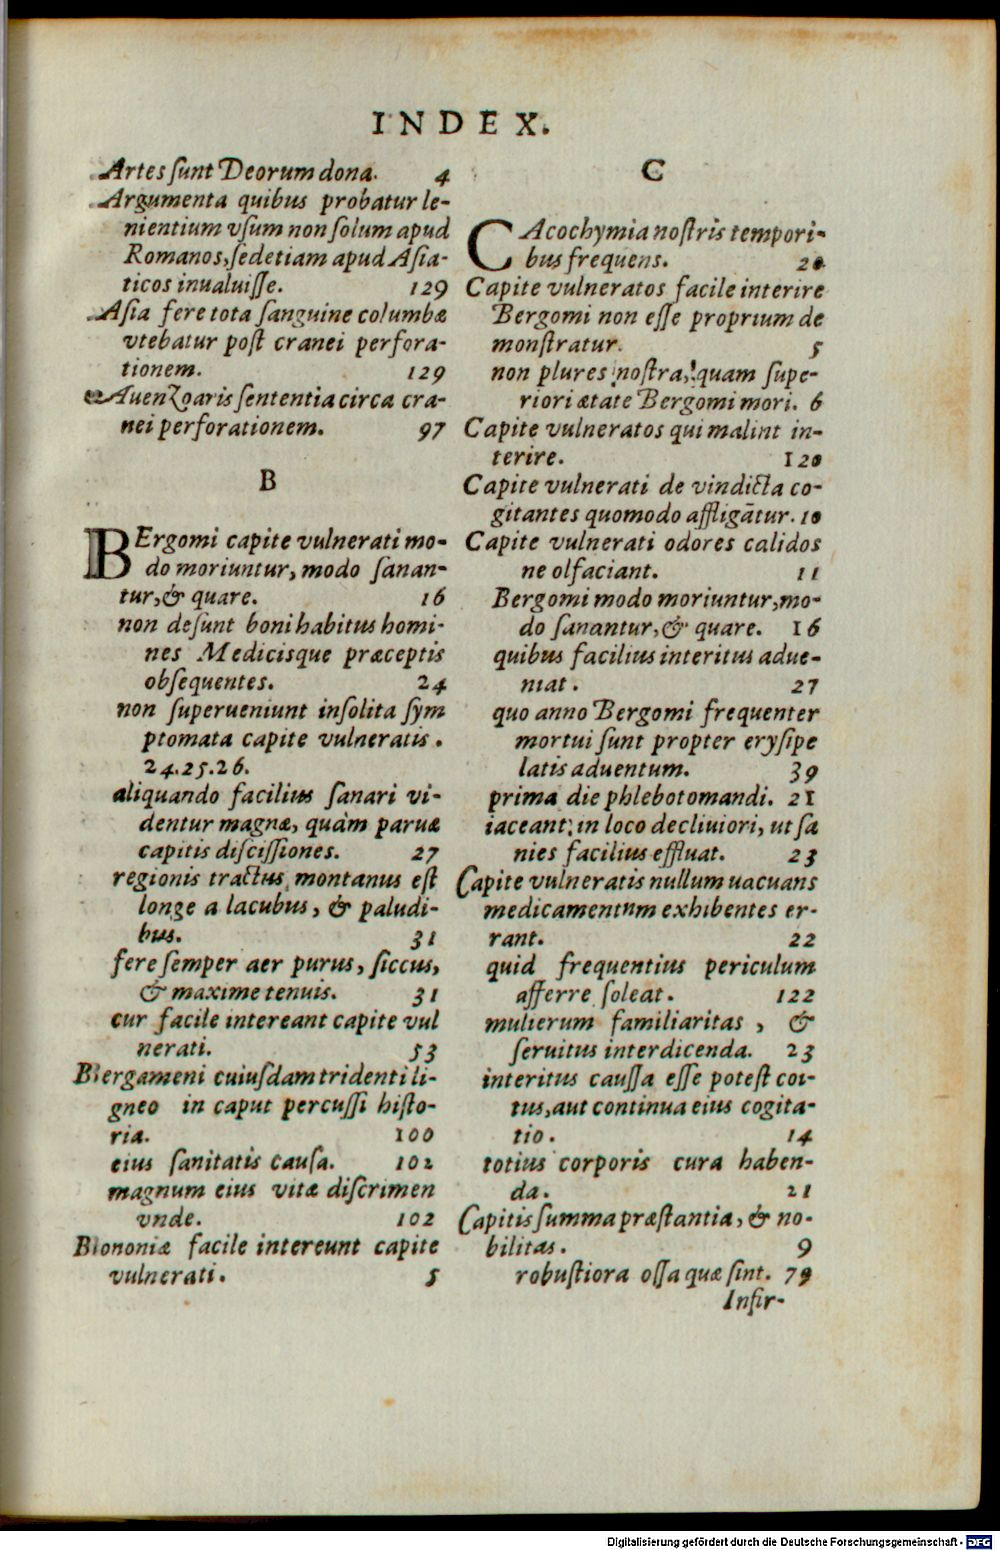 INDEX.
Artes ſunt Deorum dona. 4
Argumenta quibus probatur le-
nientium vſum non ſolum apud
Romanos, ſed etiam apud Aſia-
ticos inualuiſſe. 129
Aſia fere tota ſanguine columbæ
vtebatur poſt cranei perfora-
tionem. 129
Auenzoaris ſententia circa cra-
nei perforationem. 97
B
BErgomi capite vulnerati mo-
do moriuntur, modo ſanan-
tur, & quare. 16
non deſunt boni habitus homi-
nes Medicisque præceptis
obſequentes. 24
non ſuperueniunt inſolita ſym
ptomata capite vulneratis.
24.25.26.
aliquando facilius ſanari vi-
dentur magnæ, quàm paruæ
capitis diſciſſiones. 27
regionis tractus montanus eſt
longe a lacubus, & paludi-
bus. 31
fere ſemper aer purus, ſiccus,
& maxime tenuis. 31
cur facile intereant capite vul
nerati. 53
Bergameni cuiuſdam tridenti li-
gneo in caput percuſſi hiſto-
ria. 100
eius ſanitatis cauſa. 102
magnum eius vitæ diſcrimen
vnde. 102
Bononiæ facile intereunt capite
vulnerati. 5
C
CAcochymia noſtris tempori-
bus frequens. 20
Capite vulneratos facile interire
Bergomi non eſſe proprium de
monſtratur. 5
non plures noſtra, quam ſupe-
riori ætate Bergomi mori. 6
Capite vulneratos qui malint in-
terire. 120
Capite vulnerati de vindicta co-
gitantes quomodo affligātur. 10
Capite vulnerati odores calidos
ne olfaciant. 11
Bergomi modo moriuntur, mo-
do ſanantur, & quare. 16
quibus facilius interitus adue-
niat. 27
quo anno Bergomi frequenter
mortui ſunt propter eryſipe
latis aduentum. 39
prima die phlebotomandi. 21
iaceant in loco decliuiori, ut ſa
nies facilius effluat. 23
Capite vulneratis nullum uacuans
medicamentum exhibentes er-
rant. 22
quid frequentius periculum
afferre ſoleat. 122
mulierum familiaritas, &
ſeruitus interdicenda. 23
interitus cauſſa eſſe poteſt coi-
tus, aut continua eius cogita-
tio. 14
totius corporis cura haben-
da. 21
Capitis ſumma præſtantia, & no-
bilitas. 9
robuſtiora oſſa quæ ſint. 79
Infir-
Digitalisierung gefördert durch die Deutsche Forschungsgemeinschaft - DFG